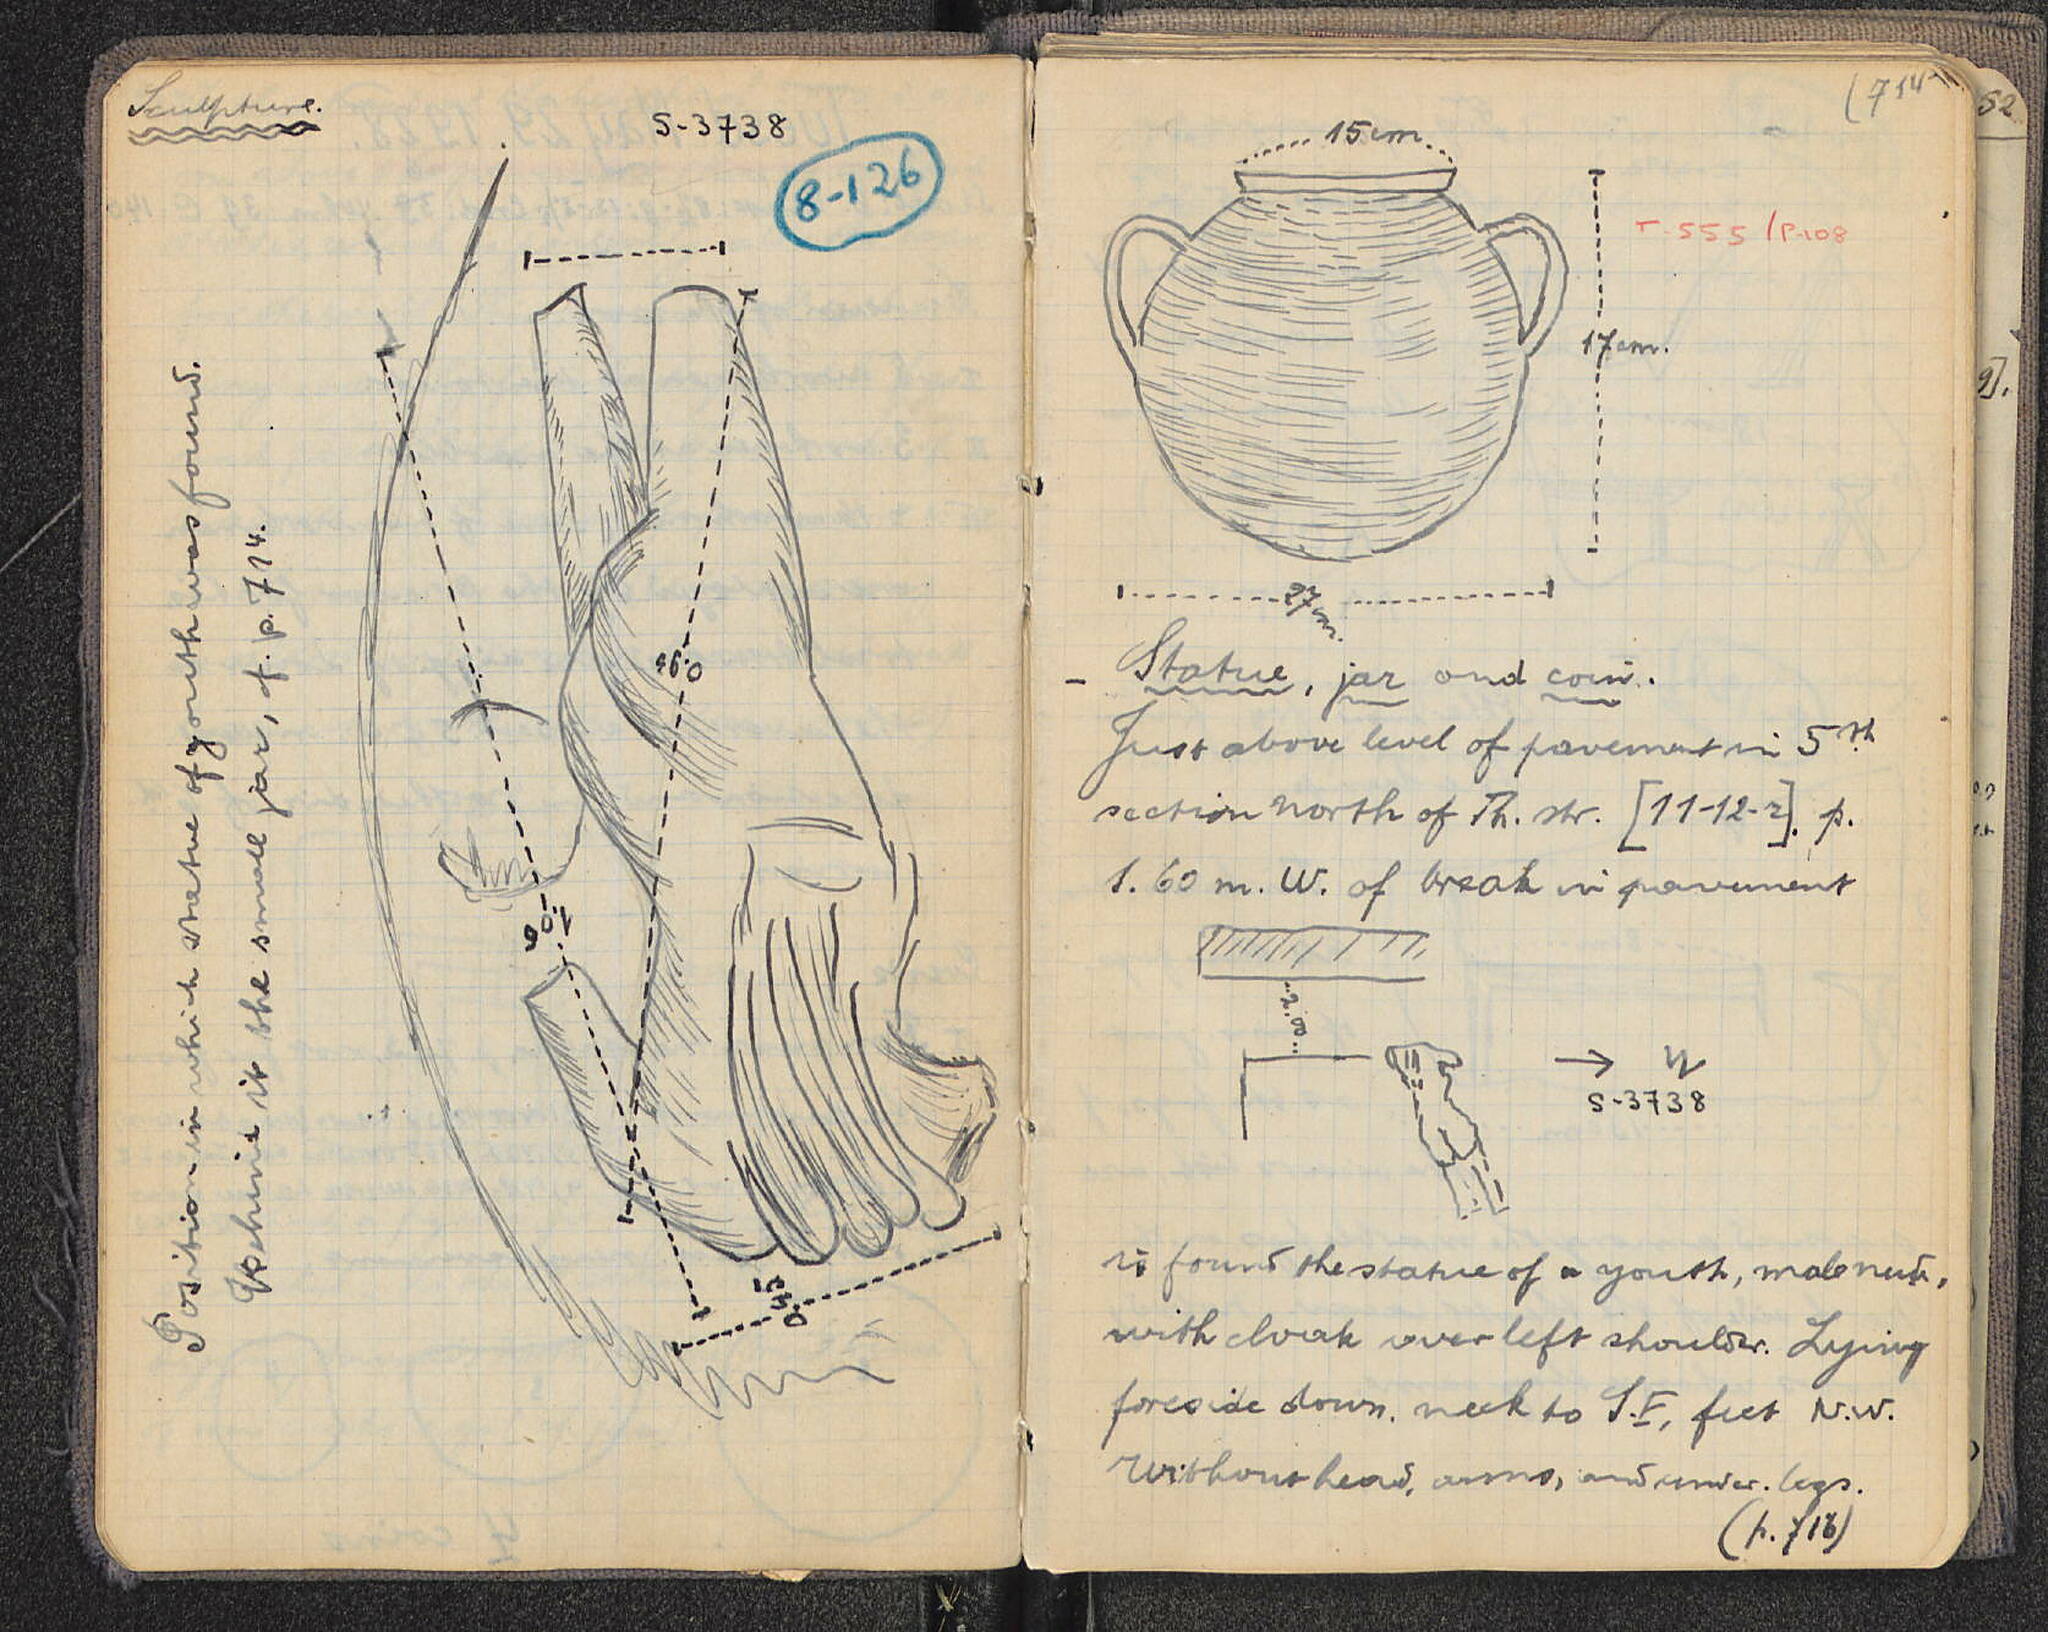 Sculpture.
S-3738
8-126
0.96
1.09
0.53
Position in which statue of youth was found.
Behind it the small jar, cf. p. 714.
(714
15 cm.
T-555 / P-108
17 cm.
27 cm.
- Statue, jar and coin.
Just above level of pavement in 5th
section north of Th. str. [11-12-2]. p.
1.60 m. W. of break in pavement
N
S-3738
is found the statue of a youth, male nude,
with cloak over left shoulder. Lying
foreside down. neck to S.E, feet N.W.
Without head, arms, and under legs.
(p. 716)
52